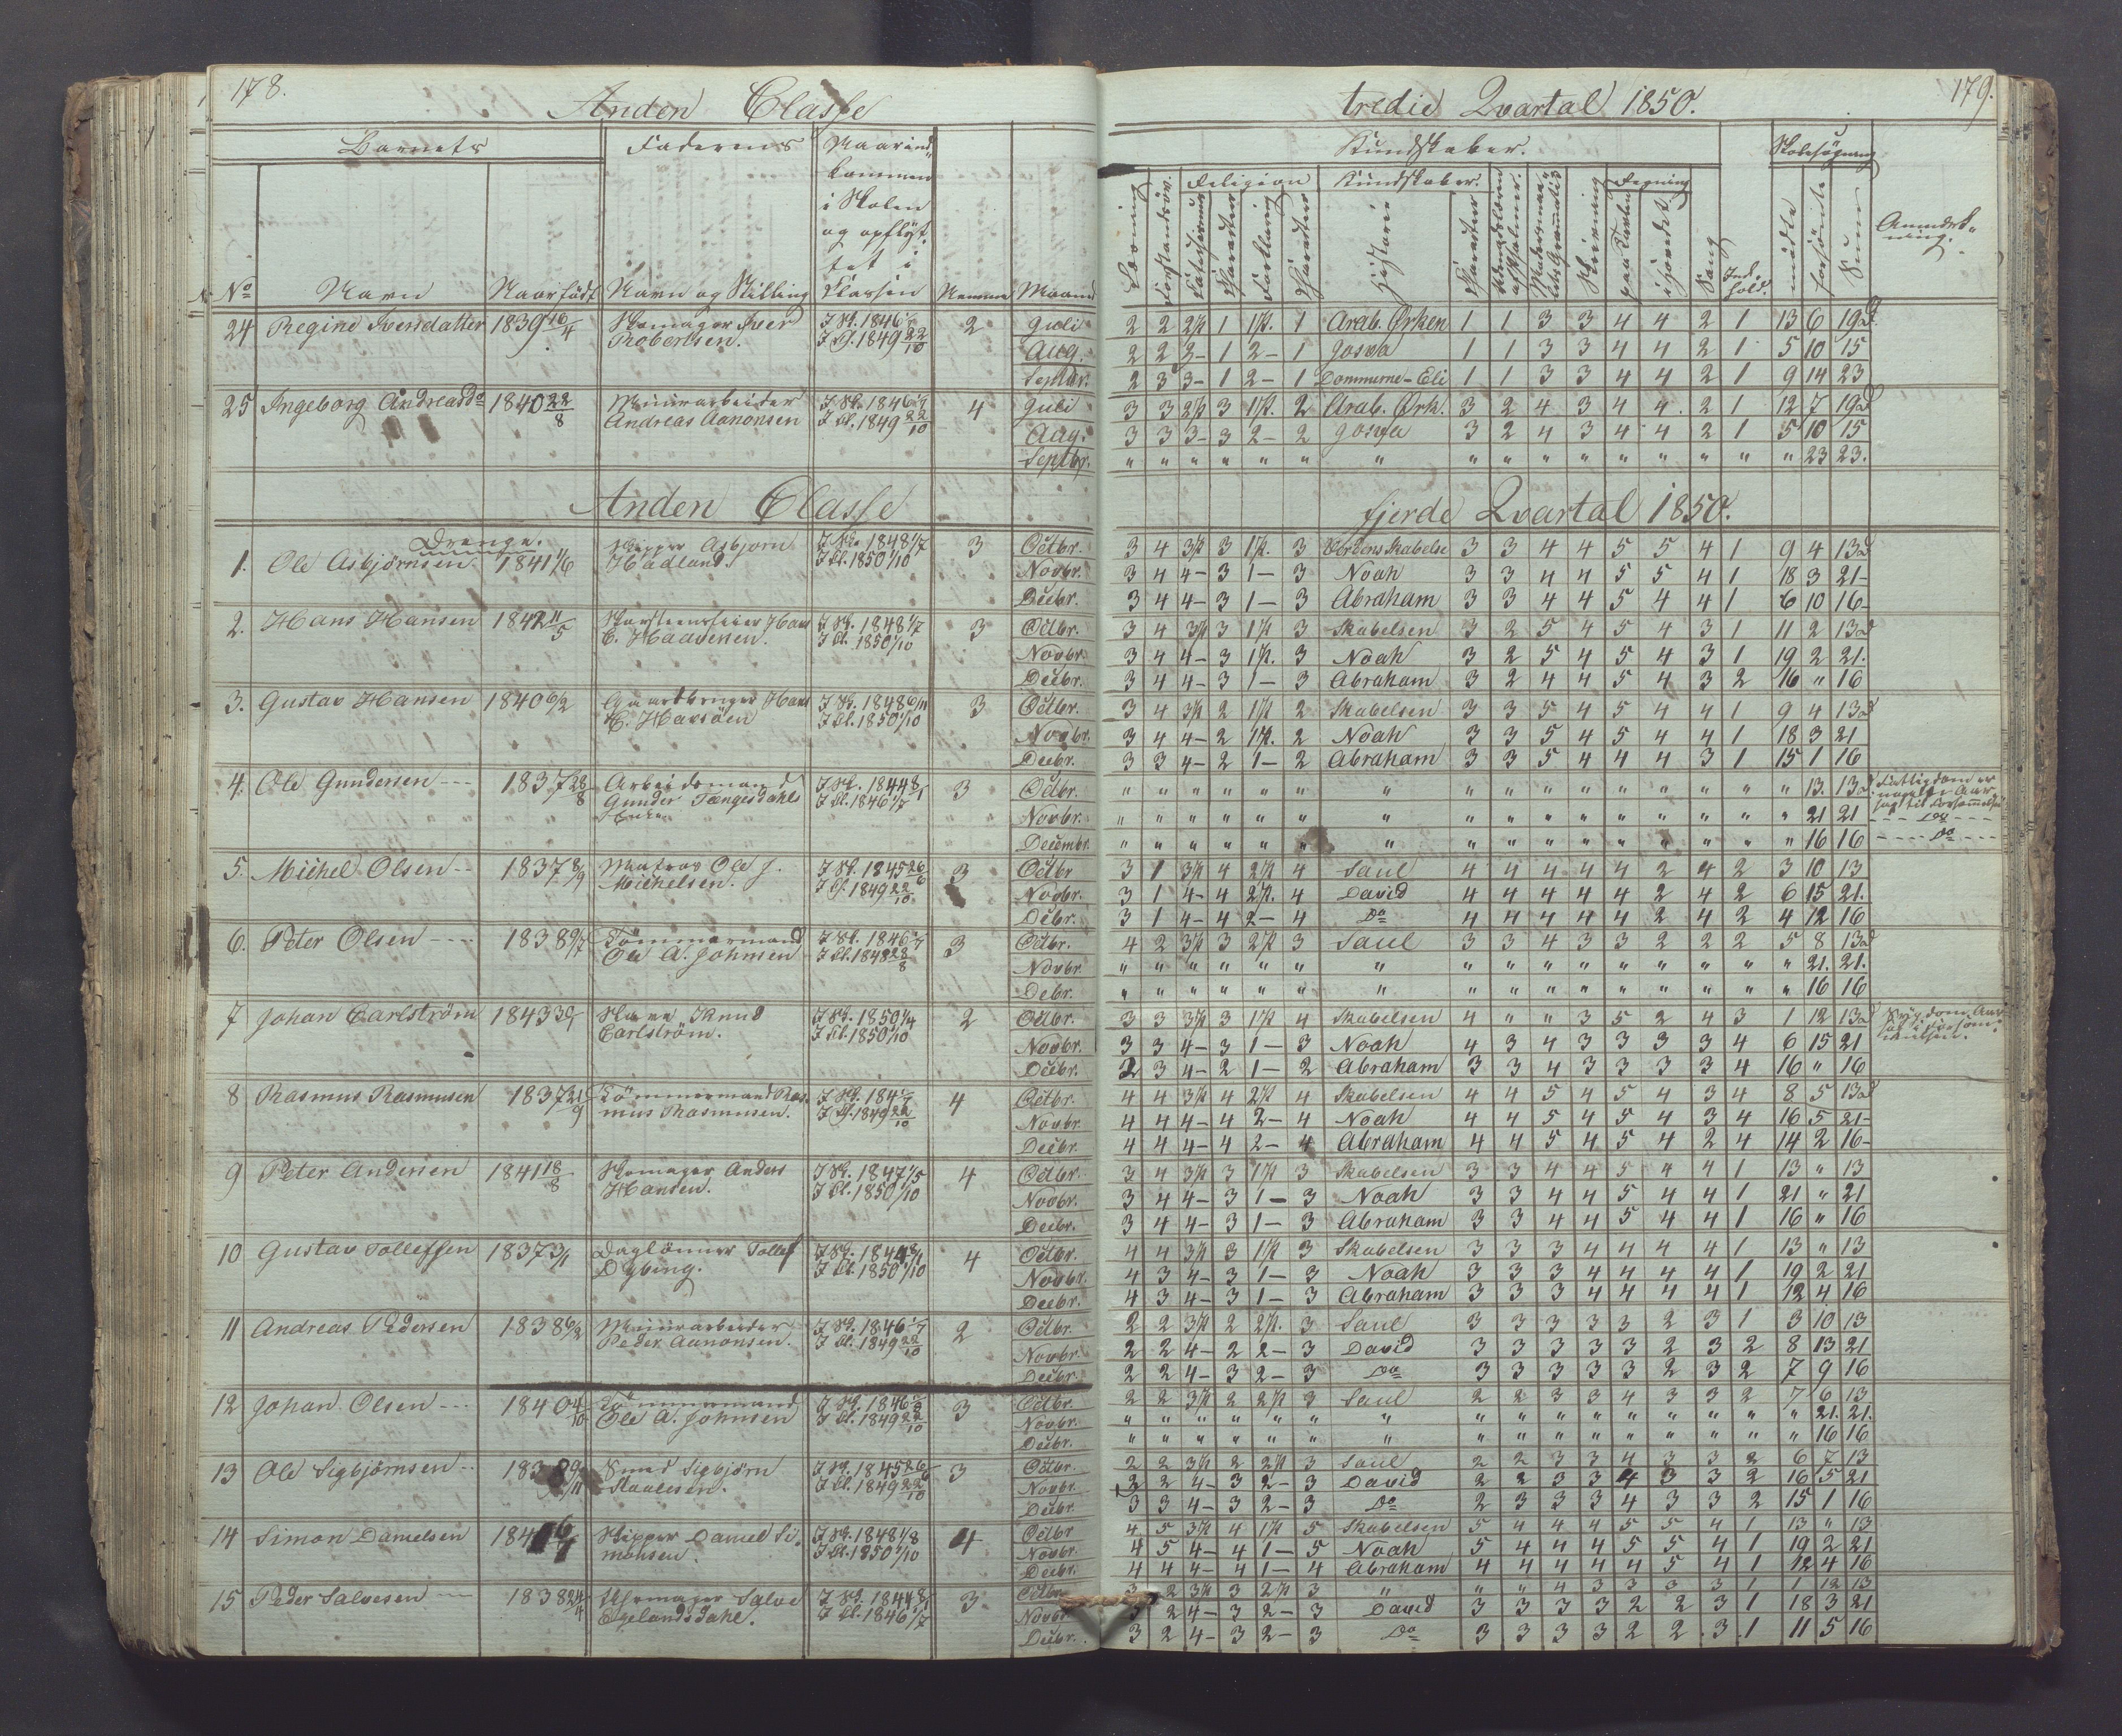 178.
Anden Classe
Barnets
Faderens
Naar ind-
kommen
i Skolen
og opflyt-
tet i
Classen
No Navn Naar født Navn og Stilling Nemme Maaned
24 Regine Iversdatter 1839 16/4 Skomager Iver 2 Juli
Robertsen. I Cl. 1849 22/10 Aug.
Septbr.
25 Ingeborg Andreasd. 1840 22/8 Muurarbeider 4 Juli
Andreas Aanonsen I Cl. 1849 22/10 Aug.
Septbr.
Anden Classe
Drenge.
1. Ole Asbjørnsen 1841 1/6 Skipper Asbjørn I Sk. 1848 1/7 3 Octbr.
Hadland I Cl. 1850 1/10 Novbr.
Decbr.
2. Hans Hansen 1842 11/5 Hans I Sk. 1848 1/7 3 Octbr.
C. Haavesen. I Cl. 1850 1/10 Novbr.
Decbr.
3. Gustav Hansen 1840 6/2 Hans I Sk. 1848 6/11 3 Octbr.
H. Havsøen I Cl. 1850 1/10 Novbr.
Decbr.
4. Ole Gundersen --- 1837 28/8 Arbeidsmand I Sk. 1844 8/1 3 Octbr.
Gunder Tengesdahls I Cl. 1846 1/7 Novbr.
Enke Decembr.
5. Michel Olsen -- 1837 8/9 Matros Ole J. I Sk. 1845 26/6 3 Octbr
Michelsen. I Cl. 1849 22/10 Novbr.
Decbr.
6. Peter Olsen --- 1838 9/7 Tømmermand I Sk. 1846 3 Octbr.
Ole A. Johnsen I Cl. 1848 28/8 Novbr.
Debr.
7 Johan Carlstrøm 1843 Knud I Sk. 1850 1/4 2 Octbr.
Carlstrøm. I Cl. 1850 1/10 Novbr.
Decbr.
8 Rasmus Rasmusen 1837 21/9 Tømmermand Ras- 4 Octbr.
mus Rasmusen. I Cl. 1849 22/10 Novbr.
Decbr.
9 Peter Andersen 1841 18/8 Skomager Anders I Sk. 1847 1/5 4 Octbr.
Hansen. I Cl. 1850 1/10 Novbr.
Decbr.
10 Gustav Tollefsen 1837 3/1 Daglønner Tollef I Sk. 1844 8/1 4 Octbr.
Dybing. I Cl. 1850 1/10 Novbr.
Decbr.
11 Andreas Pedersen 1838 6/2 Muurarbeider I Sk. 1846 2 Octbr.
Peder Aanonsen. I Cl. 1849 22/10 Novbr.
Decbr.
12 Johan Olsen --- 1840 4/10 Tømmermand I Sk. 1846 3 Octbr.
Ole A. Johnsen I Cl. 1849 22/10 Novbr.
Decbr.
13 Ole Sigbjørnsen -- 1838 Smed Sigbjørn I Sk. 1845 26/6 3 Octbr.
I Cl. 1849 22/10 Novbr.
Decbr.
14 Simon Danielsen 184 Skipper Daniel Si- I Sk. 1848 1/8 4 Octbr
monsen. I Cl. 1850 1/10 Novbr.
Decbr.
15 Peder Salvesen -- 1838 24/4 Skomager Salve I Sk. 1844 8/1 3 Octbr.
Egelandsdahl. I Cl. 1846 1/7 Novbr.
Decbr.
179.
tredie Qvartal 1850.
Kundskaber.
Skolesøgning
Religion Kundskaber. Regning
Anmærk-
ning.
Historie Skrivning Sang mødte forsømte Sum
2 2 2½ 1 1½. 1 Arab. Ørken 1 1 3 3 4 4 2 1 13 6 19d
2 2 2- 1 2- 1 Josva 1 1 3 3 4 4 2 1 5 10 15
2 3 3- 1 2- 1 Dommerne-Eli 1 1 3 3 4 4 2 1 9 14 23
3 3 2½ 3 1½. 2 Arab. Ørk. 3 2 4 3 4 4 2 1 12 7 19d
3 3 3- 3 2- 2 Josva 3 2 4 3 4 4 2 1 5 10 15
" " " " " " " " " " " " " " " " 23 23.
fjerde Qvartal 1850.
3 4 3½ 3 1½. 3 Verdens Skabelse 3 3 4 4 5 5 4 1 9 4 13d
3 4 4- 3 1- 3 Noah 3 3 4 4 5 5 4 1 18 3 21-
3 4 4- 3 1- 3 Abraham 3 3 4 4 5 4 4 1 6 10 16-
3 4 3½ 3 1½ 3 Skabelsen 3 2 5 4 5 4 3 1 11 2 13d
3 4 4- 3 1½. 3 Noah 3 2 5 4 5 4 3 1 19 2 21.
3 4 4- 3 1- 3 Abraham 3 2 4 4 5 4 3 2 16 " 16
3 4 3½ 2 1½ 2 Skabelsen 3 3 5 4 5 4 4 1 9 4 13d
3 4 4- 2 1½. 2 Noah 3 3 5 4 5 4 4 1 18 3 21
3 3 4- 2 1- 2 Abraham 3 3 5 4 4 4 3 1 15 1 16
" " " " " " " " " " " " " " " " 13. 13d Fattigdom er
" " " " " " " " " " " " " " " " 21 21 --- Do ---
" " " " " " " " " " " " " " " " 16 16 --- Do ---
3 1 3½ 4 2½ 4 Saul 4 4 4 4 4 2 4 2 3 10 13
3 1 4- 4 2½. 4 David 4 4 4 4 4 2 4 2 6 15 21.
3 1 4- 4 2- 4 Do 4 4 4 4 4 2 4 2 4 12 16
4 2 3½ 3 2½ 3 Saul 3 3 4 3 3 2 2 2 5 8 13d
" " " " " " " " " " " " " " " " 21. 21.
" " " " " " " " " " " " " " " " 16 16
3 3 3½ 3 1½ 4 Skabelsen 4 " " 3 5 2 4 3 1 12 13d Sygdom Aar-
3 3 4- 3 1- 3 Noah 4 3 4 3 3 3 3 4 6 15 21
2 3 4- 2 1- 2 Abraham 3 3 4 3 3 3 3 4 16 " 16
4 4 3½ 4 2½ 4 Skabelsen 4 4 5 4 5 4 3 4 8 5 13d
4 4 4- 4 2- 4 Noah 4 4 5 4 5 4 3 4 16 5 21-
4 4 4- 4 2- 4 Abraham 4 4 5 4 5 4 2 4 14 2 16-
3 4 3½ 3 1½ 3 Skabelsen 3 3 4 4 5 4 4 1 13 " 13
3 4 4- 3 1- 3 Noah 3 3 4 4 5 4 4 1 21 " 21
3 4 4- 3 1- 3 Abraham 3 3 4 4 5 4 4 1 16 " 16
4 4 3½ 3 1½ 3 Skabelsen 3 3 3 4 4 4 4 1 13 " 13
4 3 4- 3 1- 3 Noah 3 3 3 4 4 4 4 1 19 2 21
4 3 4- 3 1- 3 Abraham 3 3 3 4 4 4 4 1 12 4 16
2 2 3½ 2 2½. 3 Saul 3 3 3 3 3 2 3 1 3 10 13
2 2 4- 2 2- 3 David 3 3 3 3 3 2 3 2 8 13 21
2 2 4- 3 2- 3 Do 3 3 3 3 3 2 3 2 7 9 16
2 2 3½ 2 2½ 3 Saul 2 2 3 3 4 3 3 2 7 6 13
" " " " " " " " " " " " " " " " 21. 21.
" " " " " " " " " " " " " " " " 16 16
2 2 3½ 2 2½ 3 Saul 2 2 3 3 4 3 3 2 6 7 13
2 2 4- 3 2- 3 David 2 2 3 3 4 3 3 2 16 5 21
3 3 4- 3 2- 3 Do 2 3 3 3 4 3 3 2 15 1 16
4 5 3½ 4 1½ 5 Skabelsen 5 4 4 4 5 5 4 1 13 " 13
4 5 4- 4 1- 5 Noah 5 4 4 4 5 5 4 1 19 2 21
4 4 4- 4 1- 4 Abraham 4 4 4 4 4 5 4 1 12 4 16
3 2 3½ 3 2½ 3 " " " 4 3 3 3 3 1 1 12 13
3 2 4- 3 2- 3 David 3 3 3 3 2 2 3 1 18 3 21
3 2 4- 3 2- 3 Do 3 3 3 3 2 2 3 1 11 5 16